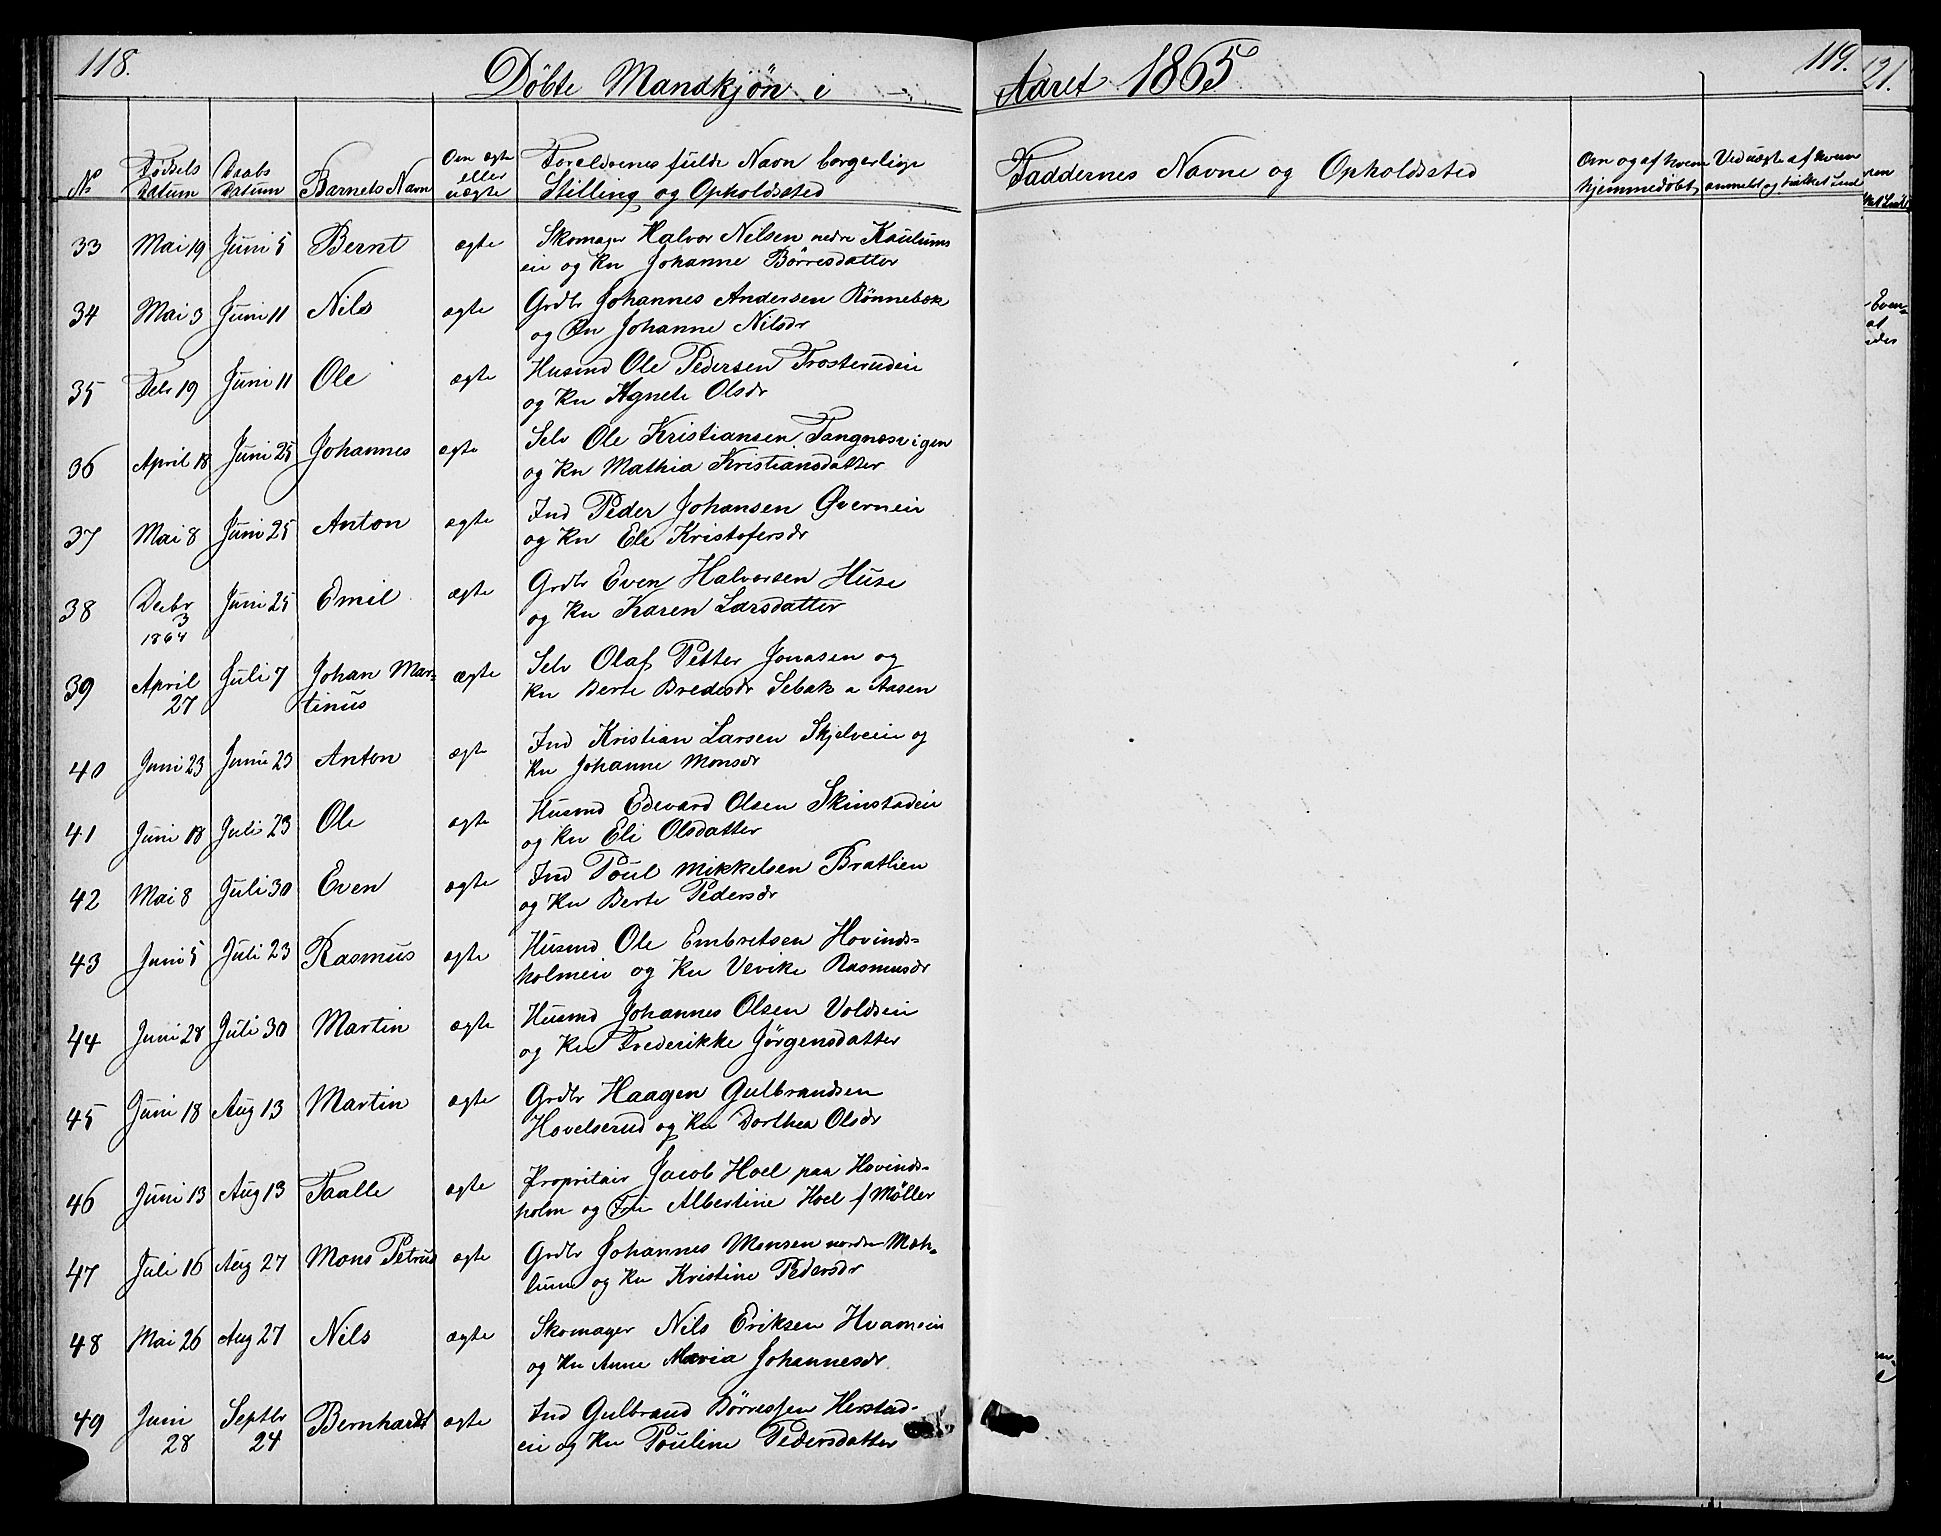 118.
Döbte Mandkjön i
Aaret 1865
119.
121.
No
Födsels Datum
Daabs Datum
Barnets Navn
Om ægte eller uægte
Foreldrenes fulde Navn borgerlige
Stilling og Opholdssted
Faddernes Navne og Opholdssted
Om og af hvem hjemmedöbt
Ved uægte af hvem anmeldt og hvilket Læd
33 Mai 19 Juni 5 Bernt ægte Skomager Halvor Nilsen nedre Kaulums
eie og Kn Johanne Börresdatter
34 Mai 3 Juni 11 Nils ægte Grdbr Johannes Andersen Rönnebæk
og Kn Johanne Nilsdr
35 Febr 19 Juni 11 Ole ægte Husmd Ole Pedersen Trosterudeie
og Kn Agnete Olsdr
36 April 18 Juni 25 Johannes ægte Selv Ole Kristiansen Tangnæsvigen
og Kn Mathia Kristiansdatter
37 Mai 8 Juni 25 Anton ægte Ind Peder Johansen Överneie
og Kn Eli Kristofersdr
38 Decbr 3 1864 Juni 25 Emil ægte Grdbr Even Halvorsen Huse
og Kn Karen Larsdatter
39 April 27 Juli 7 Johan Mar-
tinus ægte Selv Olaf Petter Jonasen og
Kn Berte Bredesdr Sebak a Aasen
40 Juni 23 Juni 23 Anton ægte Ind Kristian Larsen Skjelveie og
Kn Johanne Monsdr
41 Juni 18 Juli 23 Ole ægte Husmd Edevard Olsen Skinstadeie
og Kn Eli Olsdatter
42 Mai 8 Juli 30 Even ægte Ind Poul Mikkelsen Bratlien
og Kn Berte Pedersdr
43 Juni 5 Juli 23 Rasmus ægte Husmd Ole Embretsen Hovinds-
holmeie og Kn Vevike Rasmusdr
44 Juni 28 Juli 30 Martin ægte Husmd Johannes Olsen Voldseie
og Kn Frederikke Jörgensdatter
45 Juni 18 Aug 13 Martin ægte Grdbr Haagen Gulbrandsen
Hovelserud og Kn Dorthea Olsdr
46 Juni 13 Aug 13 Taalle ægte Propritair Jacob Hoel paa Hovinds-
holm og Fru Albertine Hoel f Møller
47 Juli 16 Aug 27 Mons Petrus ægte Grdbr Johannes Monsen nordre Mæh-
lum og Kn Kristine Pedersdr
48 Mai 26 Aug 27 Nils ægte Skomager Nils Eriksen Hvameie
og Kn Anne Maria Johannesdr
49 Juni 28 Septbr 24 Bernhardt ægte Ind Gulbrand Börressen Herstad-
eie og Kn Pouline Pedersdatter